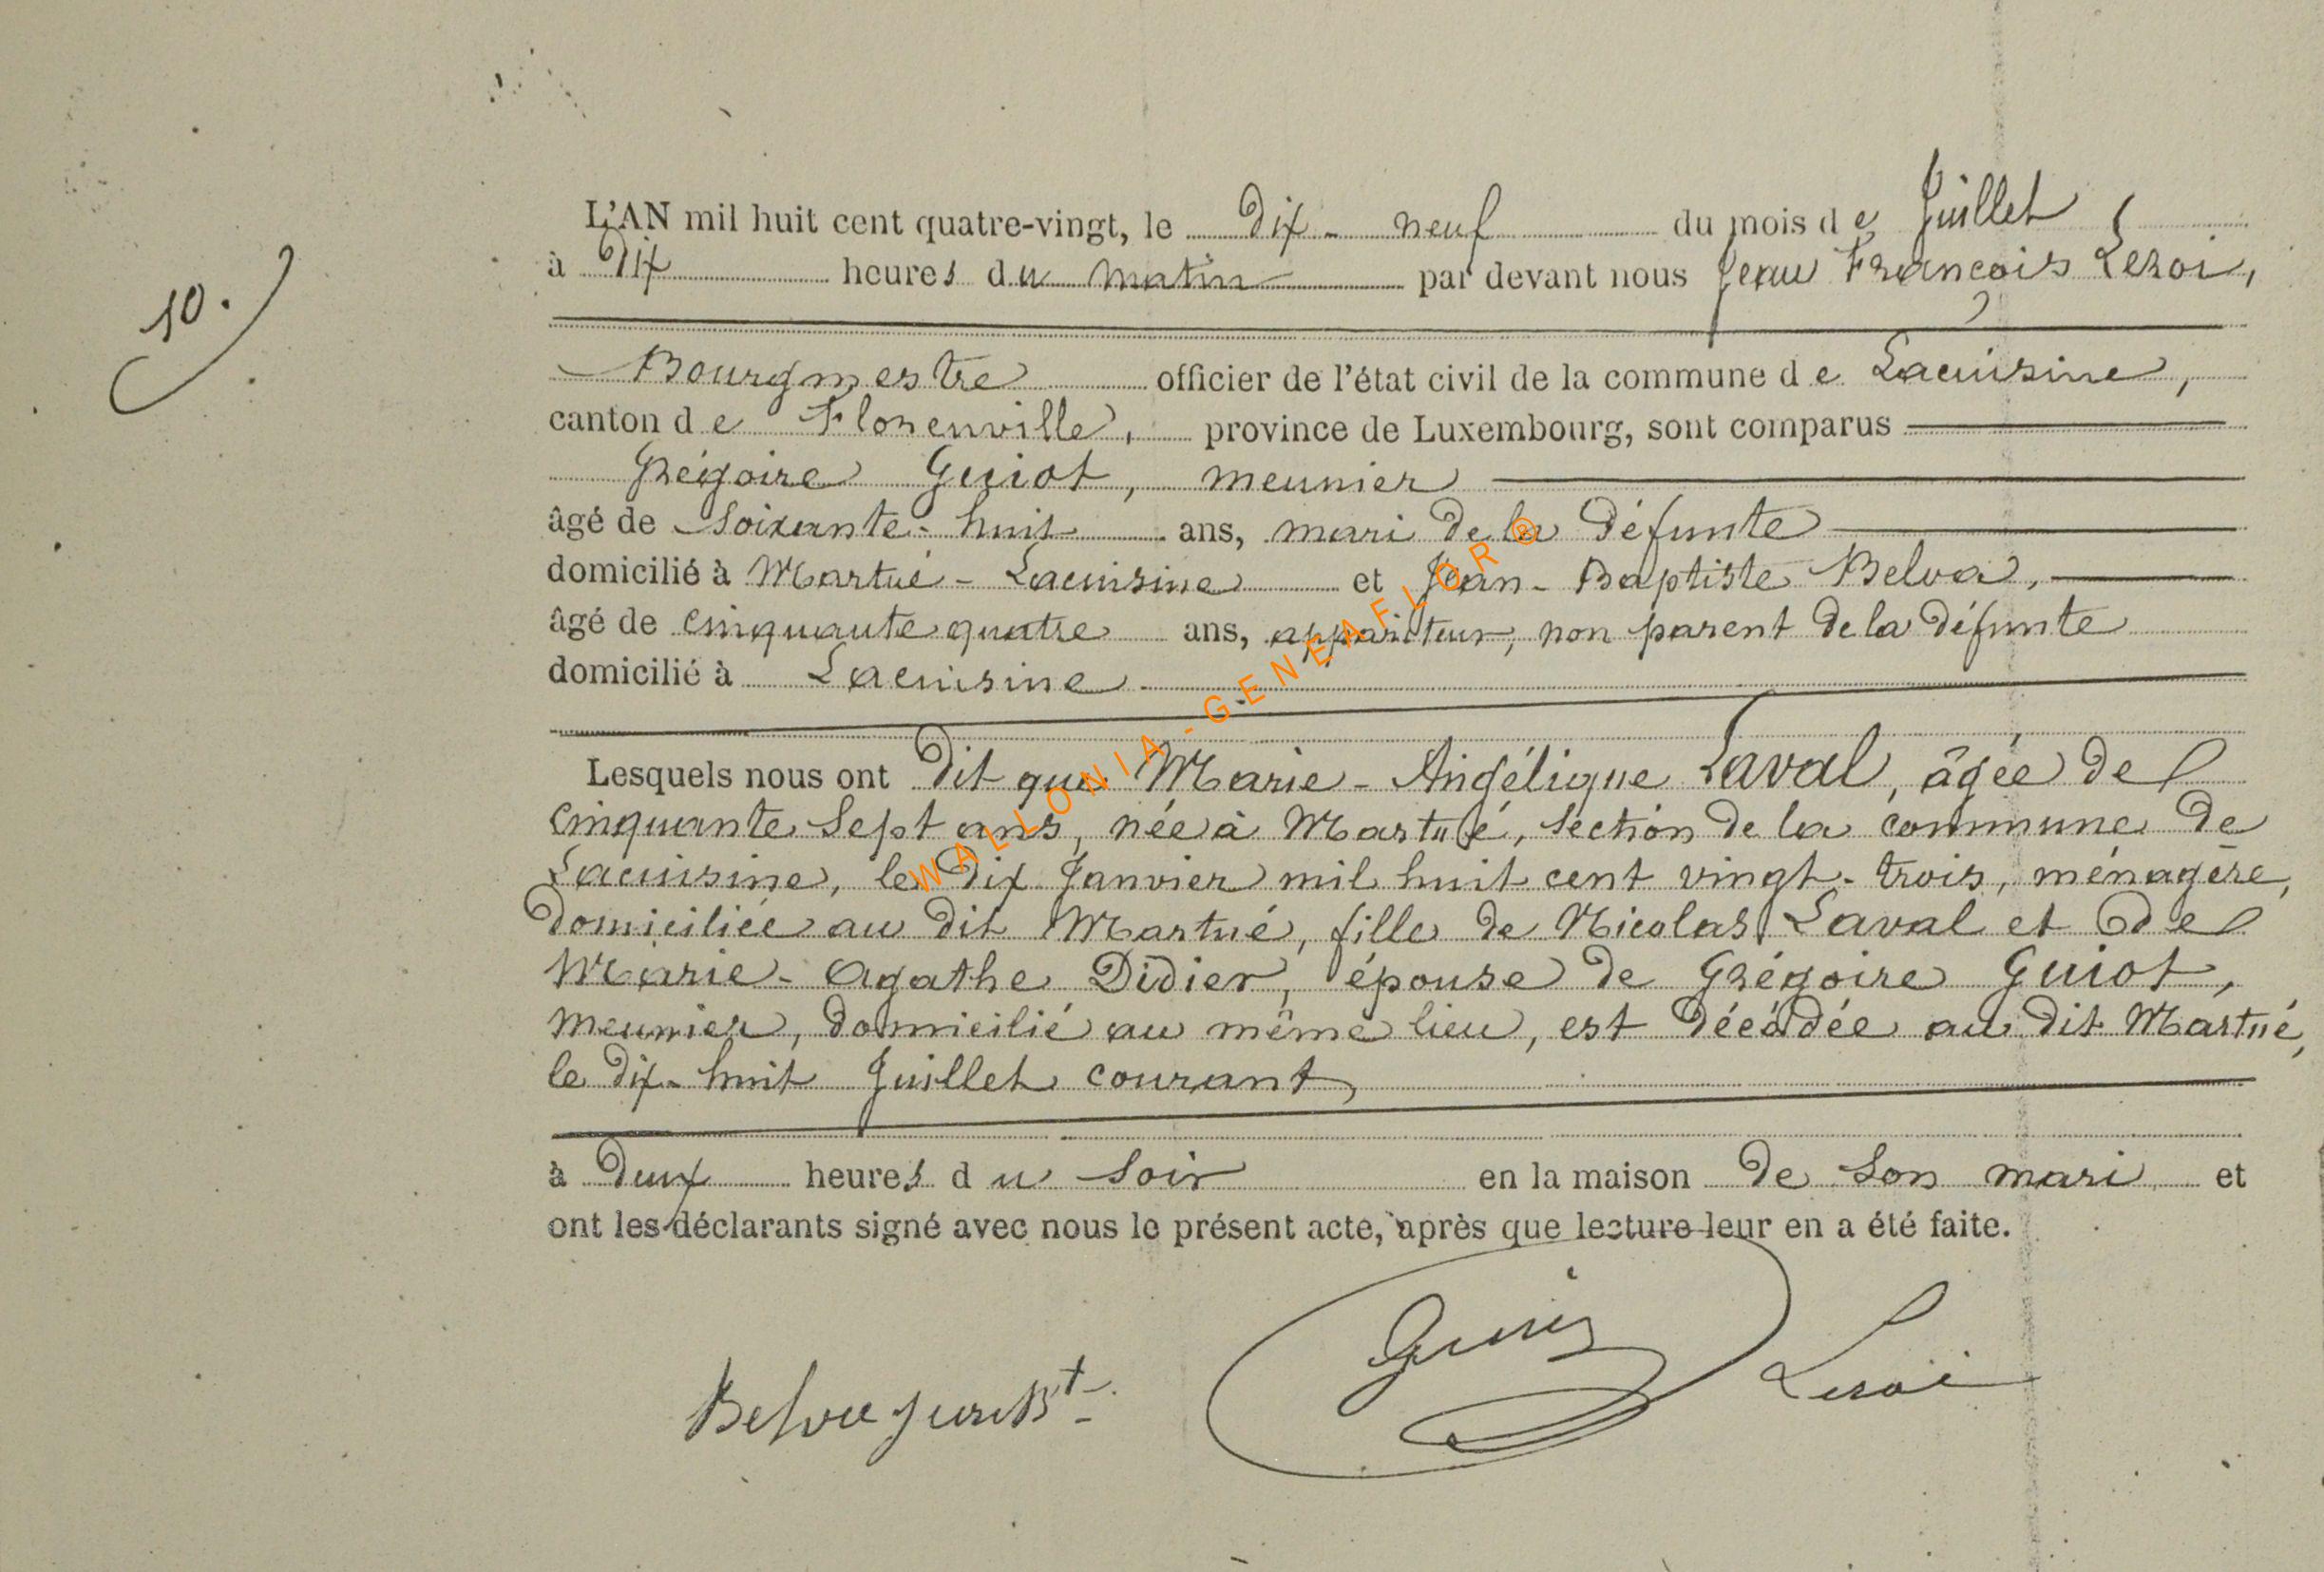 10.
L'AN mil huit cent quatre-vingt, le Dix - neuf du mois de Juillet
à Dix heures du matin par devant nous Jean François Leroi,
Bourgmestre officier de l'état civil de la commune de Lacuisine,
canton de Florenville, province de Luxembourg, sont comparus
Grégoire Guiot, meunier
âgé de Soixante-huit ans, mari de la Défunte
domicilié à Martué - Lacuisine et Jean-Baptiste Belva,
âgé de cinquante quatre ans, appariteur, non parent de la défunte
domicilié à Lacuisine
Lesquels nous ont Dit que Marie-Angélique Laval, âgée de
cinquante Sept ans, née à Martué, Section de la commune de
Lacuisine, le Dix Janvier mil huit cent vingt-trois, ménagère,
domiciliée au dit Martué, fille de Nicolas Laval et de
Marie-Agathe Didier, épouse de Grégoire Guiot,
meunier, domicilié au même lieu, est décédée au dit Martué,
le dix-huit Juillet courant,
à Deux heures du Soir en la maison de Son mari et
ont les déclarants signé avec nous le présent acte, après que lecture leur en a été faite.
Guiot
Leroi
Belva jean Bt
WALLONIA-GENEAFLOR®